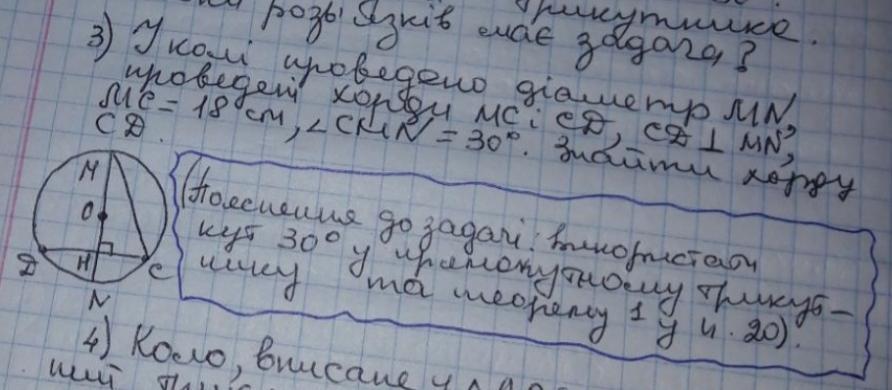 розв'язків має задача?
трикутника.
3) У колі проведено діаметр MN,
проведені хорди MC і CD, CD ⊥ MN,
MC = 18 см, ∠CMN = 30°. Знайти хорду
CD.
M
O
D
H
C
N
(Пояснення до задачі: використати
кут 30° у прямокутному трикут-
нику та теорему 1 у п. 20).
4) Коло, вписане у
ний